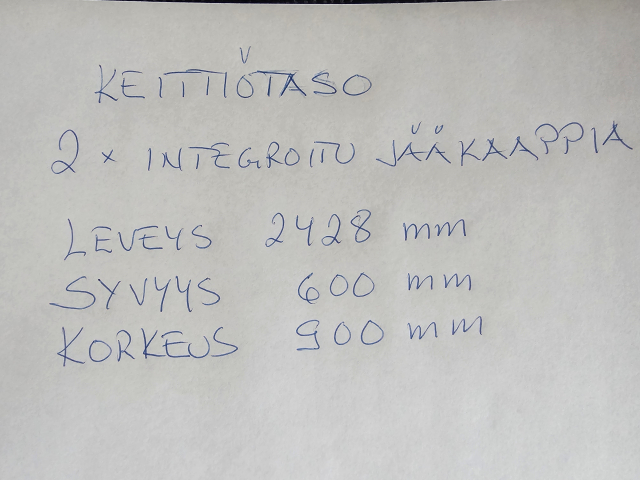 KEITTIÖTASO
2 x INTEGROITU JÄÄKAAPPIA
LEVEYS 2428 mm
SYVYYS 600 mm
KORKEUS 900 mm